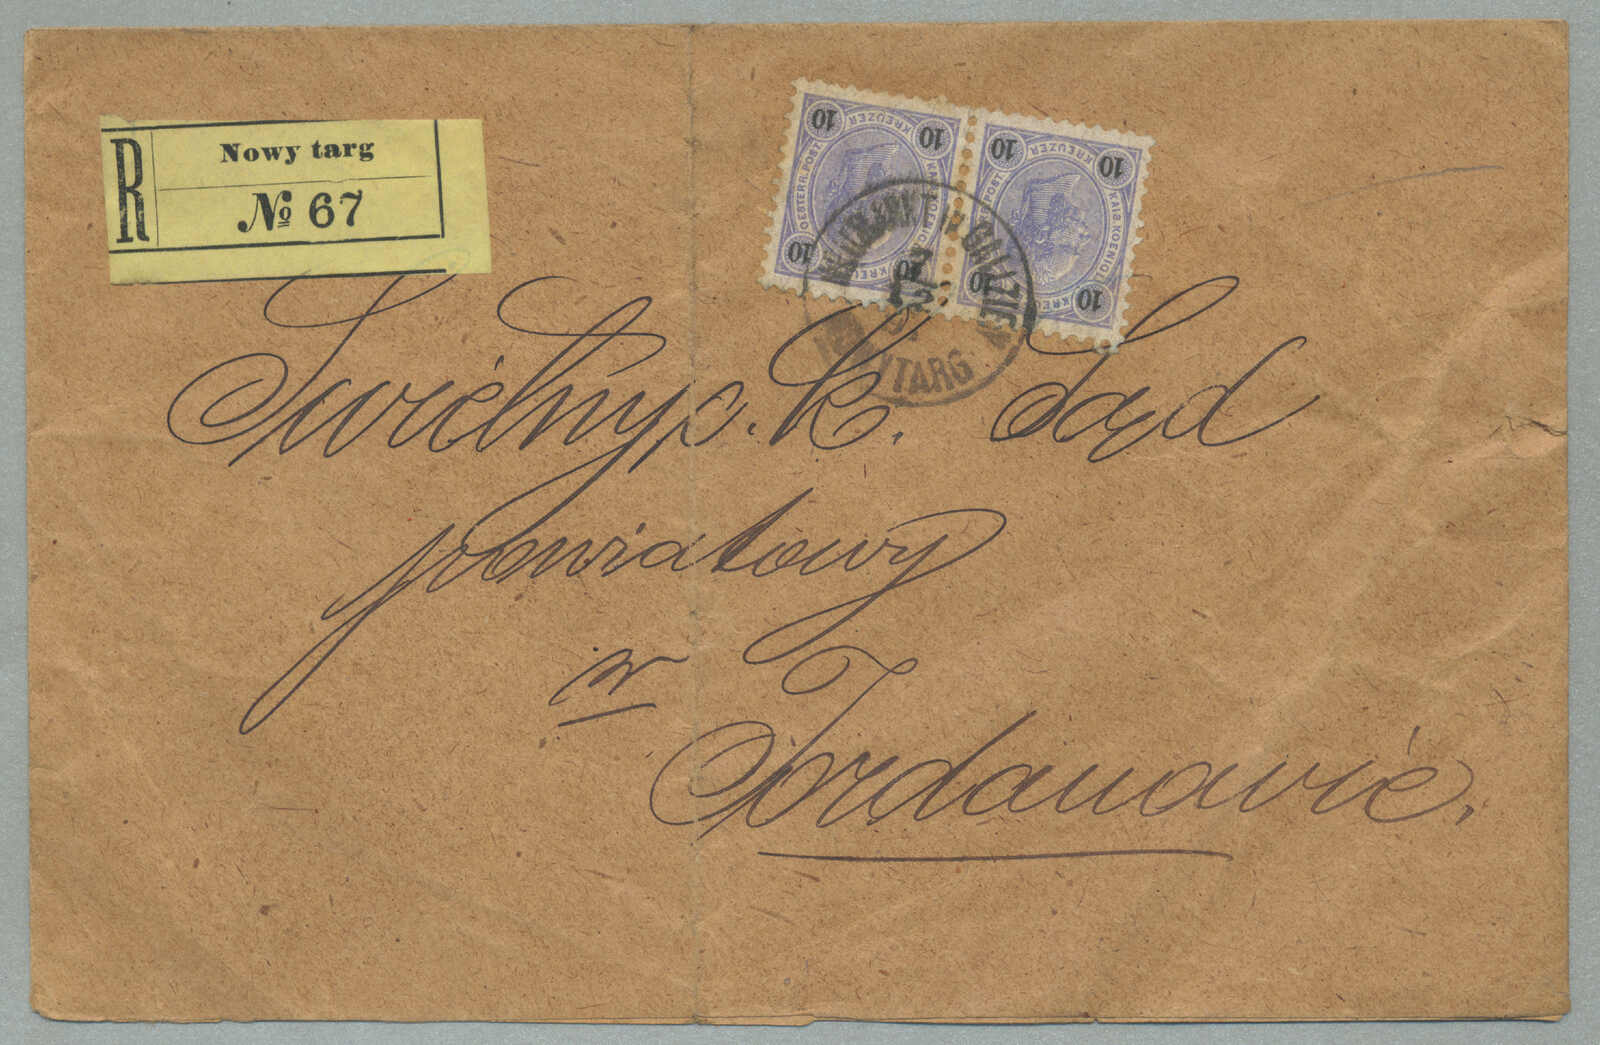 R
Nowy targ
№ 67
10 KREUZER 10
OESTERR. POST KAIS. KOENIGL.
10 KREUZER 10
10 KREUZER 10
POST KAIS. KOENIGL.
10 KREUZER 10
IN GALIZIEN
TARG
Świetny c. k. Sąd
powiatowy
w
Jordanowie.